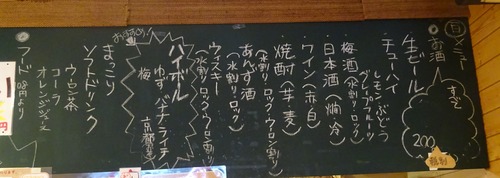 百 メニュー
お酒
生ビール
200
すご
チューハイ
レモン・ぶどう
グレープフルーツ
梅酒 (水割り・ロック)
日本酒 (燗 冷)
ワイン (赤 白)
焼酎 (芋 麦)
(水割り・ロック・ウーロン割り)
あんず酒
(水割り ロック)
ウィスキー
(水割り ロック・ウーロン割り)
おすすめ!
ハイボール
ゆず バナナ ライチ
梅
まっこり
ソフトドリンク
コーラ
ウーロン茶
オレンジジュース
フード
08円より